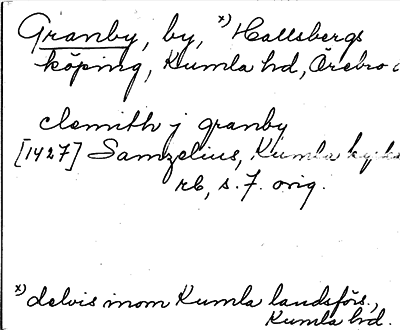 Granby, by, x) Hallsbergs
köping, Kumla hd, Örebro
clemith j granby
[1427] Samzelius, Kumla
rb, s. 7. orig.
x) delvis inom Kumla landsförs.,
Kumla hd.